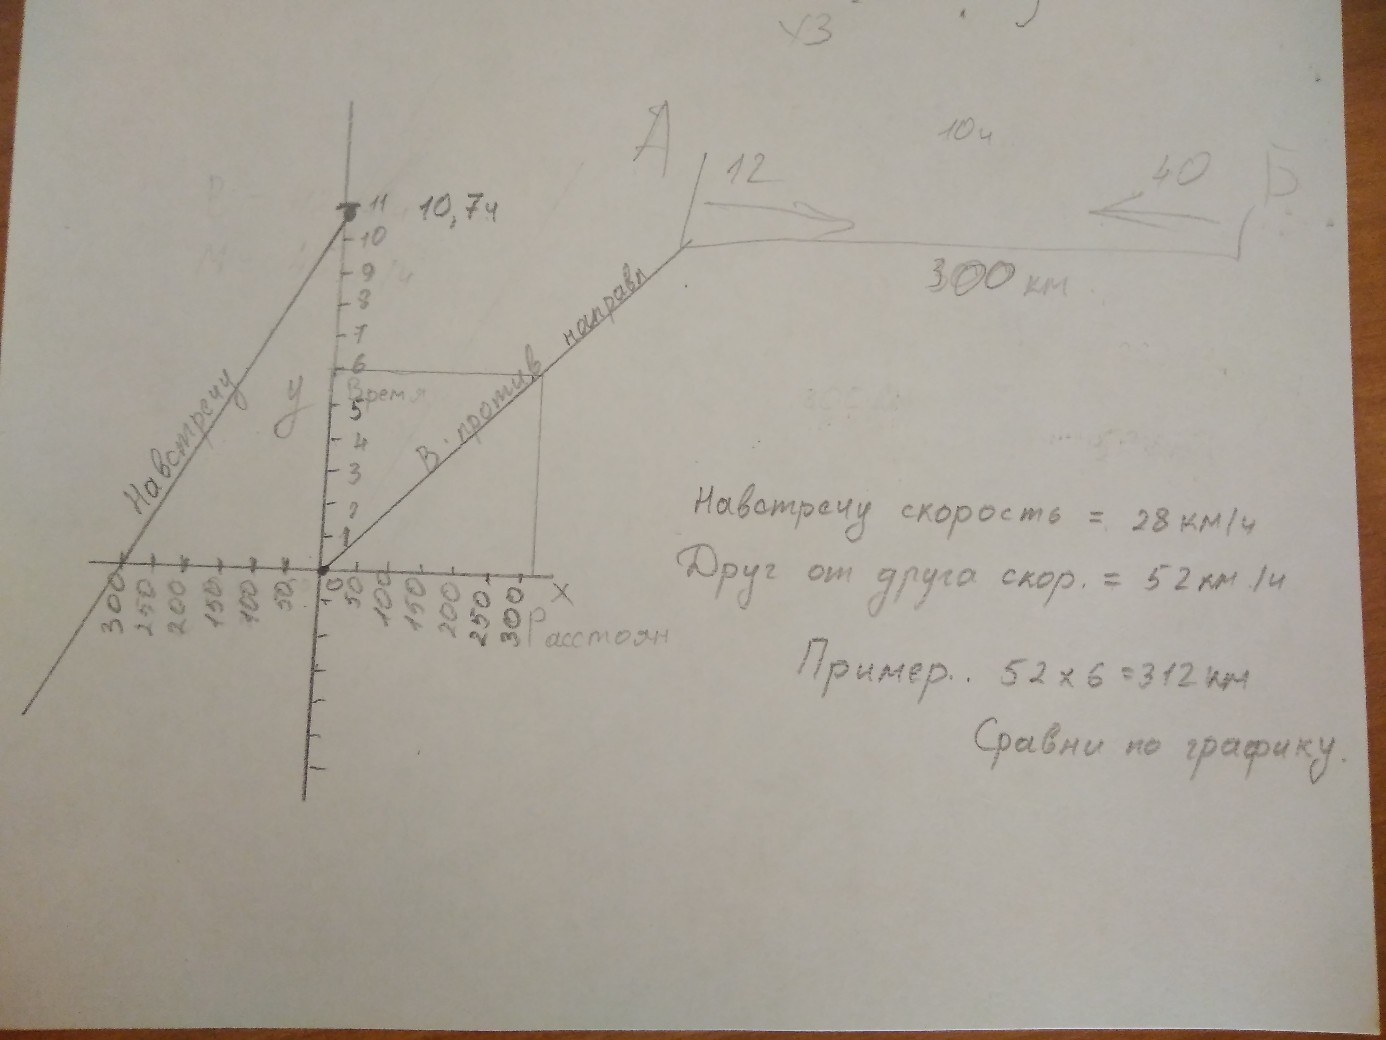 х3
А
12
10ч
40
Б
300 км
11 10,7ч
10
9
8
7
6
Время
5
4
3
2
1
У
Навстречу
В против направл
300 250 200 150 100 50 0 50 100 150 200 250 300
Х
Расстоян
Навстречу скорость = 28 км/ч
Друг от друга скор. = 52 км./ч
Пример.. 52 х 6 = 312 км
Сравни по графику.